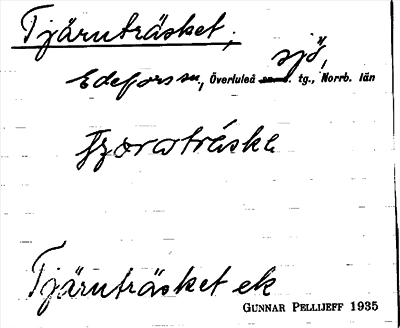 Tjärnträsket, sjö,
Edefors sn., Överluleå tg., Norrb. län
Tjärnträsket ek
GUNNAR PELLIJEFF 1935